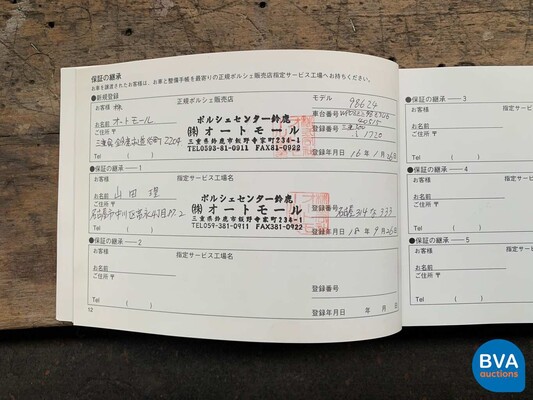 保証の継承
お車を譲渡されたお客様は、お車と整備手帳を最寄りの正規ポルシェ販売店指定サービス工場へお持ちください。
●新規登録
お客様 株
正規ポルシェ販売店
モデル 98624
お名前 オートモール
ご住所 〒
ポルシェセンター鈴鹿
㈱オートモール
三重県鈴鹿市飯野寺家町234-1
TEL0593-81-0911 FAX81-0922
車台番号
登録番号 三重 300
す 1720
Tel ( )
登録年月日 16年1月26日
●保証の継承 — 1
お客様
指定サービス工場名
お名前 山田
ご住所 〒
ポルシェセンター鈴鹿
㈱オートモール
三重県鈴鹿市飯野寺家町234-1
TEL.059-381-0911 FAX.381-0922
登録番号 名古屋 314 な 333
Tel ( )
登録年月日 18年9月26日
●保証の継承 — 2
お客様
指定サービス工場名
お名前
ご住所 〒
登録番号
Tel ( )
登録年月日 年 月 日
12
●保証の継承 — 3
お客様
お名前
ご住所 〒
Tel ( )
●保証の継承 — 4
お客様
お名前
ご住所 〒
Tel ( )
●保証の継承 — 5
お客様
お名前
ご住所 〒
Tel ( )
BVA
auctions